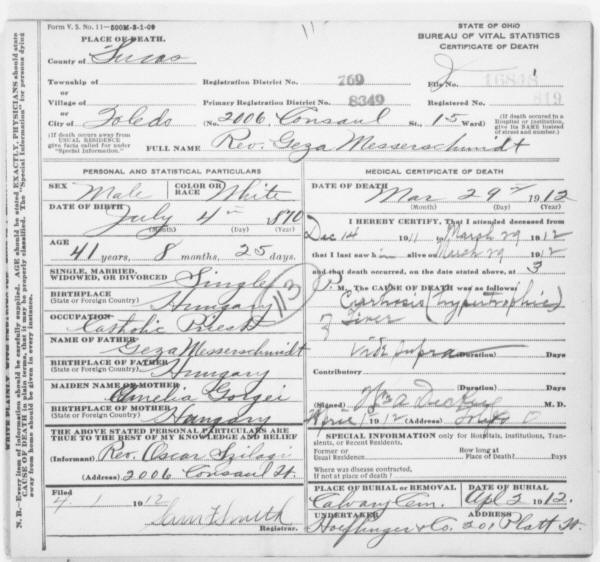 Form V. S. No. 11—500M-3-1-09
PLACE OF DEATH.
County of Lucas
Township of
or
Village of
or
City of Toledo
STATE OF OHIO
BUREAU OF VITAL STATISTICS
CERTIFICATE OF DEATH
Registration District No. 769
File No. 16848
Primary Registration District No. 8349
Registered No. 819
(No. 2006 Consaul St., 15 Ward)
(If death occurred in a Hospital or institution, give its NAME instead of street and number.)
(If death occurs away from USUAL RESIDENCE give facts called for under "Special Information.")
FULL NAME Rev. Geza Messerschmidt
PERSONAL AND STATISTICAL PARTICULARS
SEX Male
COLOR OR RACE White
DATE OF BIRTH July 4th 1870
(Month) (Day) (Year)
AGE 41 years, 8 months, 25 days.
SINGLE, MARRIED, WIDOWED, OR DIVORCED Single
BIRTHPLACE (State or Foreign Country) Hungary
OCCUPATION Catholic Priest
NAME OF FATHER Geza Messerschmidt
BIRTHPLACE OF FATHER (State or Foreign Country) Hungary
MAIDEN NAME OF MOTHER Amelia Gorgei
BIRTHPLACE OF MOTHER (State or Foreign Country) Hungary
THE ABOVE STATED PERSONAL PARTICULARS ARE TRUE TO THE BEST OF MY KNOWLEDGE AND BELIEF
(Informant) Rev. Oscar Szilagi
(Address) 2006 Consaul St.
Filed 4 1 1912
Smith
Registrar.
MEDICAL CERTIFICATE OF DEATH
DATE OF DEATH Mar 29th 1912
(Month) (Day) (Year)
I HEREBY CERTIFY, That I attended deceased from
Dec 14 1911 to March 29 1912
that I last saw him alive on March 29 1912
and that death occurred, on the date stated above, at 3
P.M. The CAUSE OF DEATH was as follows:
Cirrhosis (hypertrophic)
of Liver
Vide Supra (Duration) Days
Contributory
(Duration) Days
(Signed) Wm A Dickey M. D.
April 1 1912 (Address) Toledo O
SPECIAL INFORMATION only for Hospitals, Institutions, Transients, or Recent Residents.
Former or Usual Residence
How long at Place of Death? Days
Where was disease contracted, If not at place of death?
PLACE OF BURIAL OR REMOVAL Calvary Cem.
DATE OF BURIAL Apl 2 1912.
UNDERTAKER Hoeflinger & Co.
ADDRESS 201 Platt St.
113
WRITE PLAINLY WITH UNFADING INK
N. B.—Every item of information should be carefully supplied. AGE should be stated EXACTLY. PHYSICIANS should state CAUSE OF DEATH in plain terms, that it may be properly classified. The "Special Information" for persons dying away from home should be given in every instance.